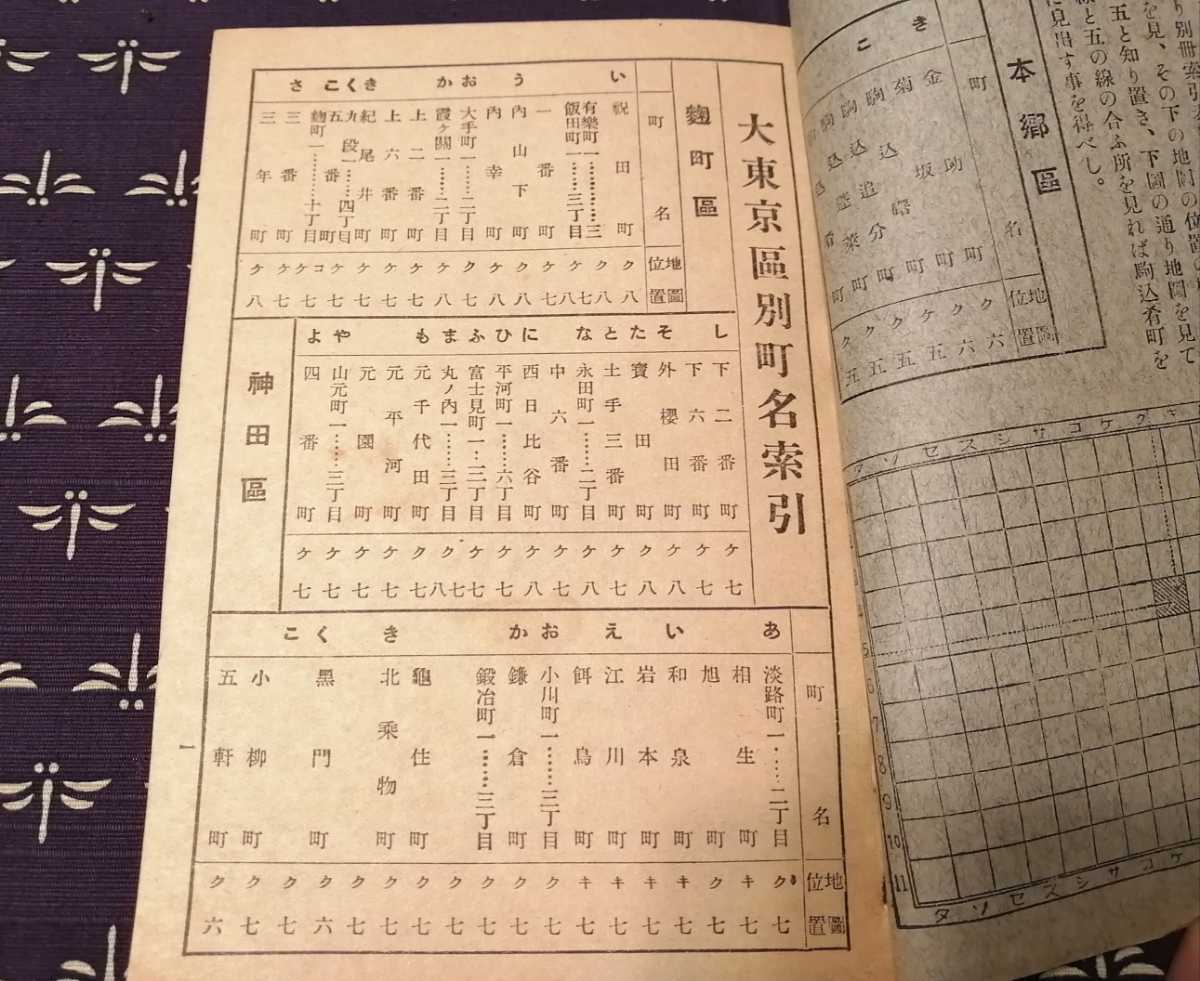 り別冊索引
を見、その下の地圖の位置
五と知り置き、下圖の通り地圖を見て
線と五の線の合ふ所を見れば駒込肴町を
に見出す事を得べし。
本郷區
きこ
町名
地圖位置
金助町 ク六
菊坂町 ク六
駒込曙町 ケ五
駒込追分町 ク五
駒込蓬莱町 ク五
駒込肴町 ク五
タソセスシサコケクキ
5
6
7
8
9
10
11
タソセスシサコケ
大東京區別町名索引
麴町區
いうおかきくこさ
町名
地圖位置
祝田町 ク八
有樂町一……三丁目 ク八
飯田町一……三丁目 ケ七
一番町 ケ七
內山下町 ク八
內幸町 ク八
大手町一……二丁目 ク七
霞ヶ關一……二丁目 ケ八
上二番町 ケ七
上六番町 ケ七
紀尾井町 ケ七
九段一……四丁目 ケ七
五番町 ケ七
麴町一……十丁目
三番町 ケ七
三年町 ケ八
しそたとなにひふまもやよ
下二番町 ケ七
下六番町 ケ七
外櫻田町 ケ八
寶田町 ク八
土手三番町 ケ七
永田町一……二丁目 ケ八
中六番町 ケ七
西日比谷町 ケ八
平河町一……六丁目 ケ七
富士見町一……二丁目 ケ七
丸ノ內一……三丁目 ク七八
元千代田町 ク七
元平河町 ケ七
元園町 ケ七
山元町一……三丁目 ケ七
四番町 ケ七
神田區
あいえおかきくこ
町名
地圖位置
淡路町一……二丁目 ク七
相生町 キ七
旭町 ク七
和泉町 キ七
岩本町 キ七
江川町 キ七
餌鳥町 キ七
小川町一……三丁目 ク七
鎌倉町 ク七
鍛冶町一……三丁目 ク七
龜住町
北乘物町
黑門町
小柳町 ク七
五軒町 ク六
一